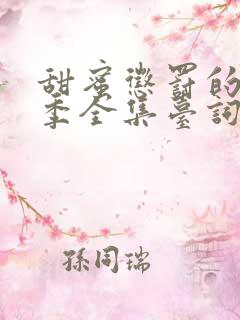 甜蜜懲罰的
季全集臺詞
孫同瑞